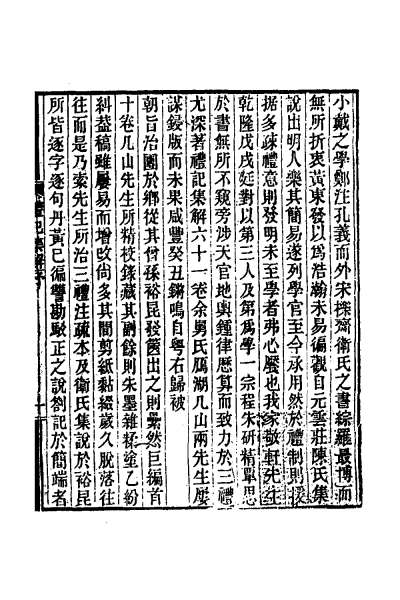 小戴之學鄭注孔義而外宋櫟齋衛氏之書綜羅最博而
無所折衷黃東發以爲浩瀚未易徧觀自元雲莊陳氏集
說出明人樂其簡易遂列學官至今承用然於禮制則援
据多疎禮意則發明未至學者弗心饜也我家敬軒先生
乾隆戊戌廷對以第三人及第爲學一宗程朱研精覃思
於書無所不窺旁涉天官地輿鍾律厤算而致力於三禮
尤深著禮記集解六十一卷余舅氏鴈湖几山兩先生屢
謀鋟版而未果咸豐癸丑鏘鳴自粤右歸被
朝旨治團於鄉從其曾孫裕昆發篋出之則纍然巨編首
十卷几山先生所精校錄藏其副餘則朱墨雜糅塗乙紛
糾葢稿雖屢易而增改尙多其間剪紙黏綴歲久脫落往
往而是乃索先生所治三禮注疏本及衛氏集說於裕昆
所皆逐字逐句丹黃已徧讐勘駁正之說劄記於簡端者